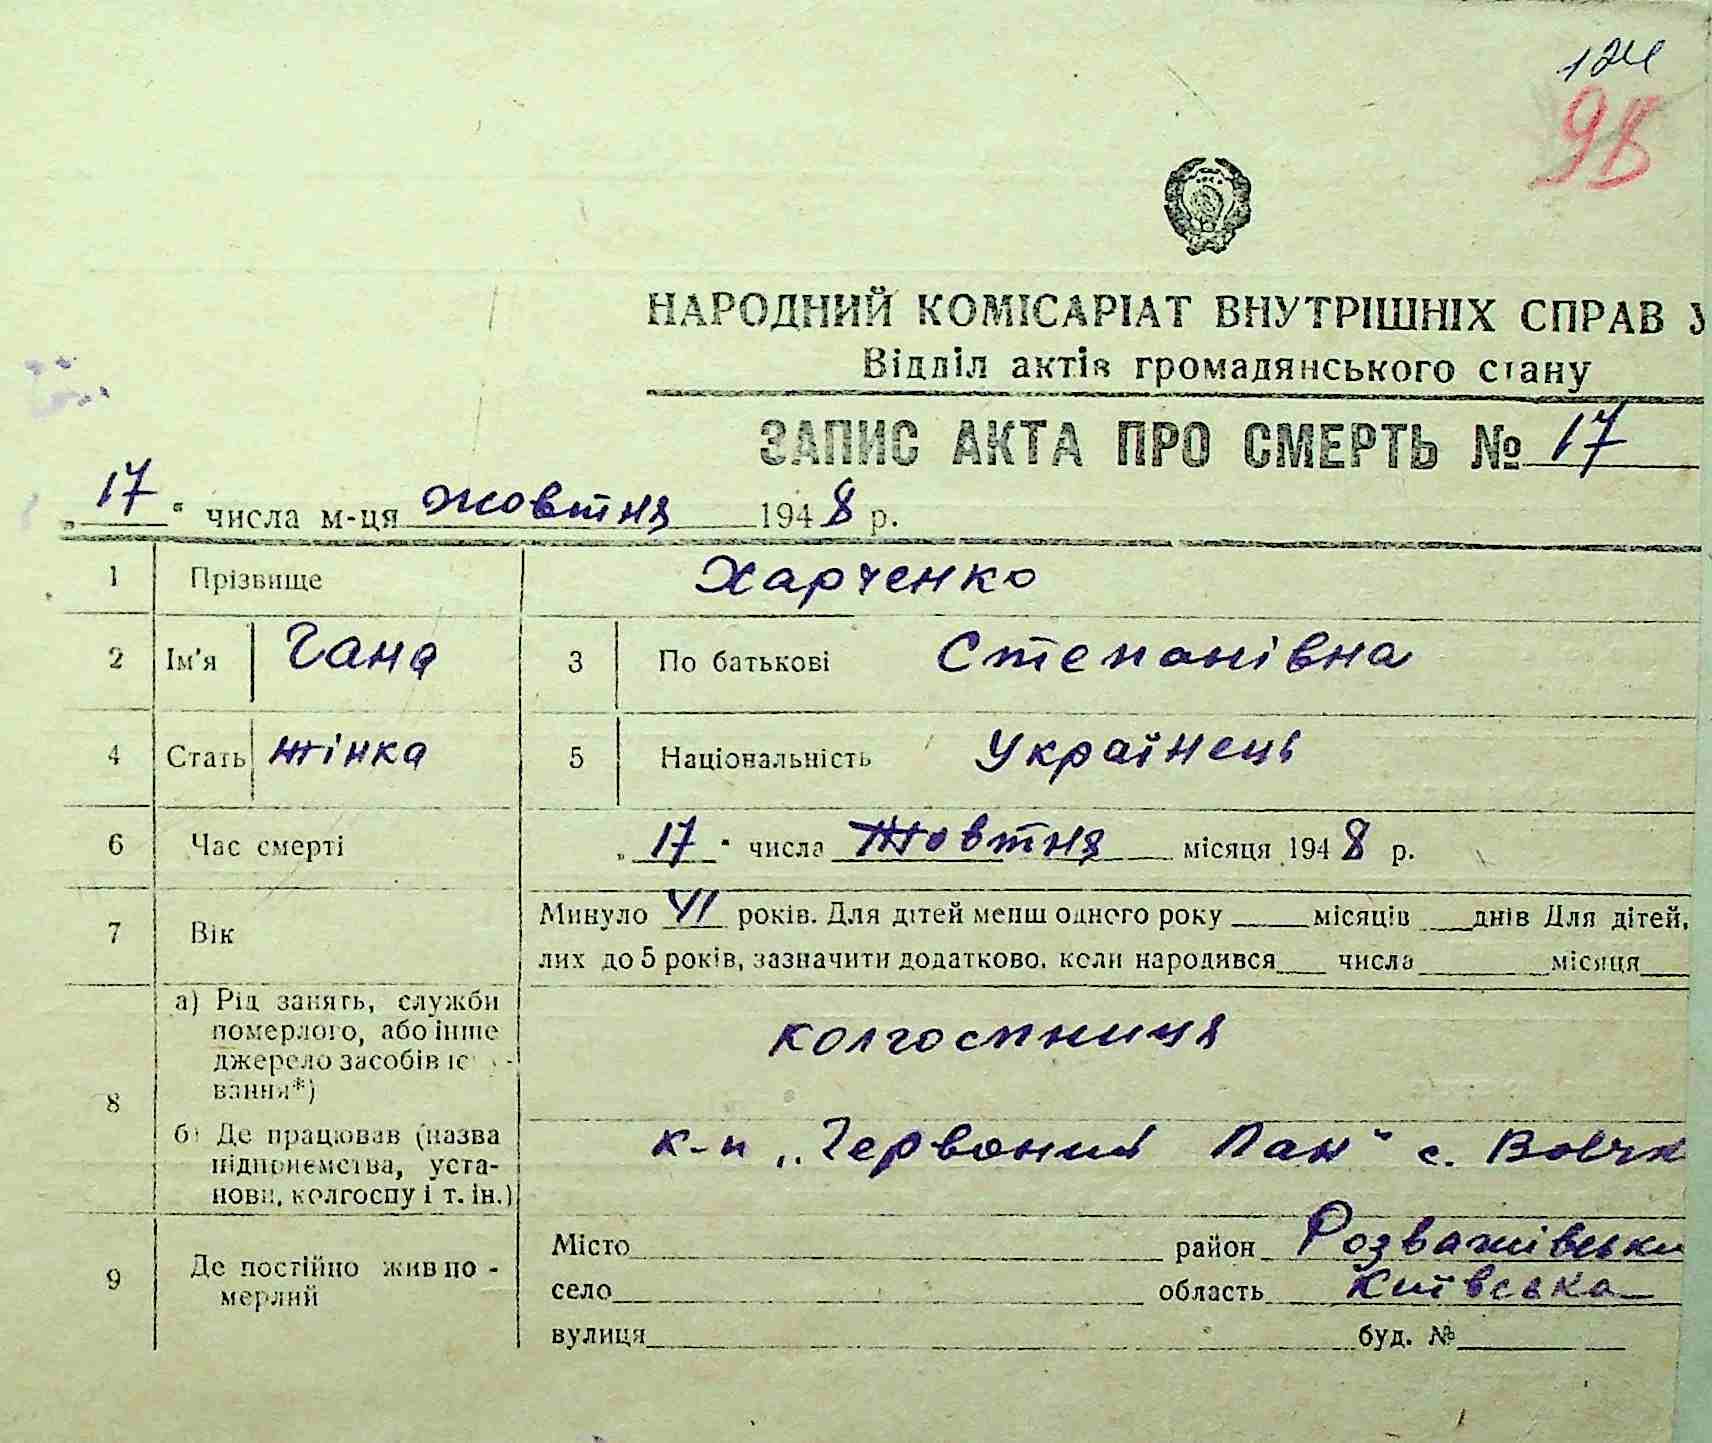 124
98
НАРОДНИЙ КОМІСАРІАТ ВНУТРІШНІХ СПРАВ У
Відділ актів громадянського стану
ЗАПИС АКТА ПРО СМЕРТЬ № 17
„ 17 “ числа м-ця жовтня 1948 р.
1 Прізвище Харченко
2 Ім'я Гана 3 По батькові Степанівна
4 Стать жінка 5 Національність Українець
6 Час смерті „ 17 “ числа Жовтня місяця 1948 р.
7 Вік Минуло 41 років. Для дітей менш одного року ____ місяців ____ днів Для дітей,
лих до 5 років, зазначити додатково, коли народився ____ числа ____ місяця
8 а) Рід занять, служби
померлого, або інше
джерело засобів іс -
вання*)
колгоспниця
б) Де працював (назва
підприємства, уста-
нови, колгоспу і т. ін.)
к-п „Червоний Лан“ с.
9 Де постійно жив по-
мерлий
Місто район Розважівськи
село область Київська
вулиця буд. №